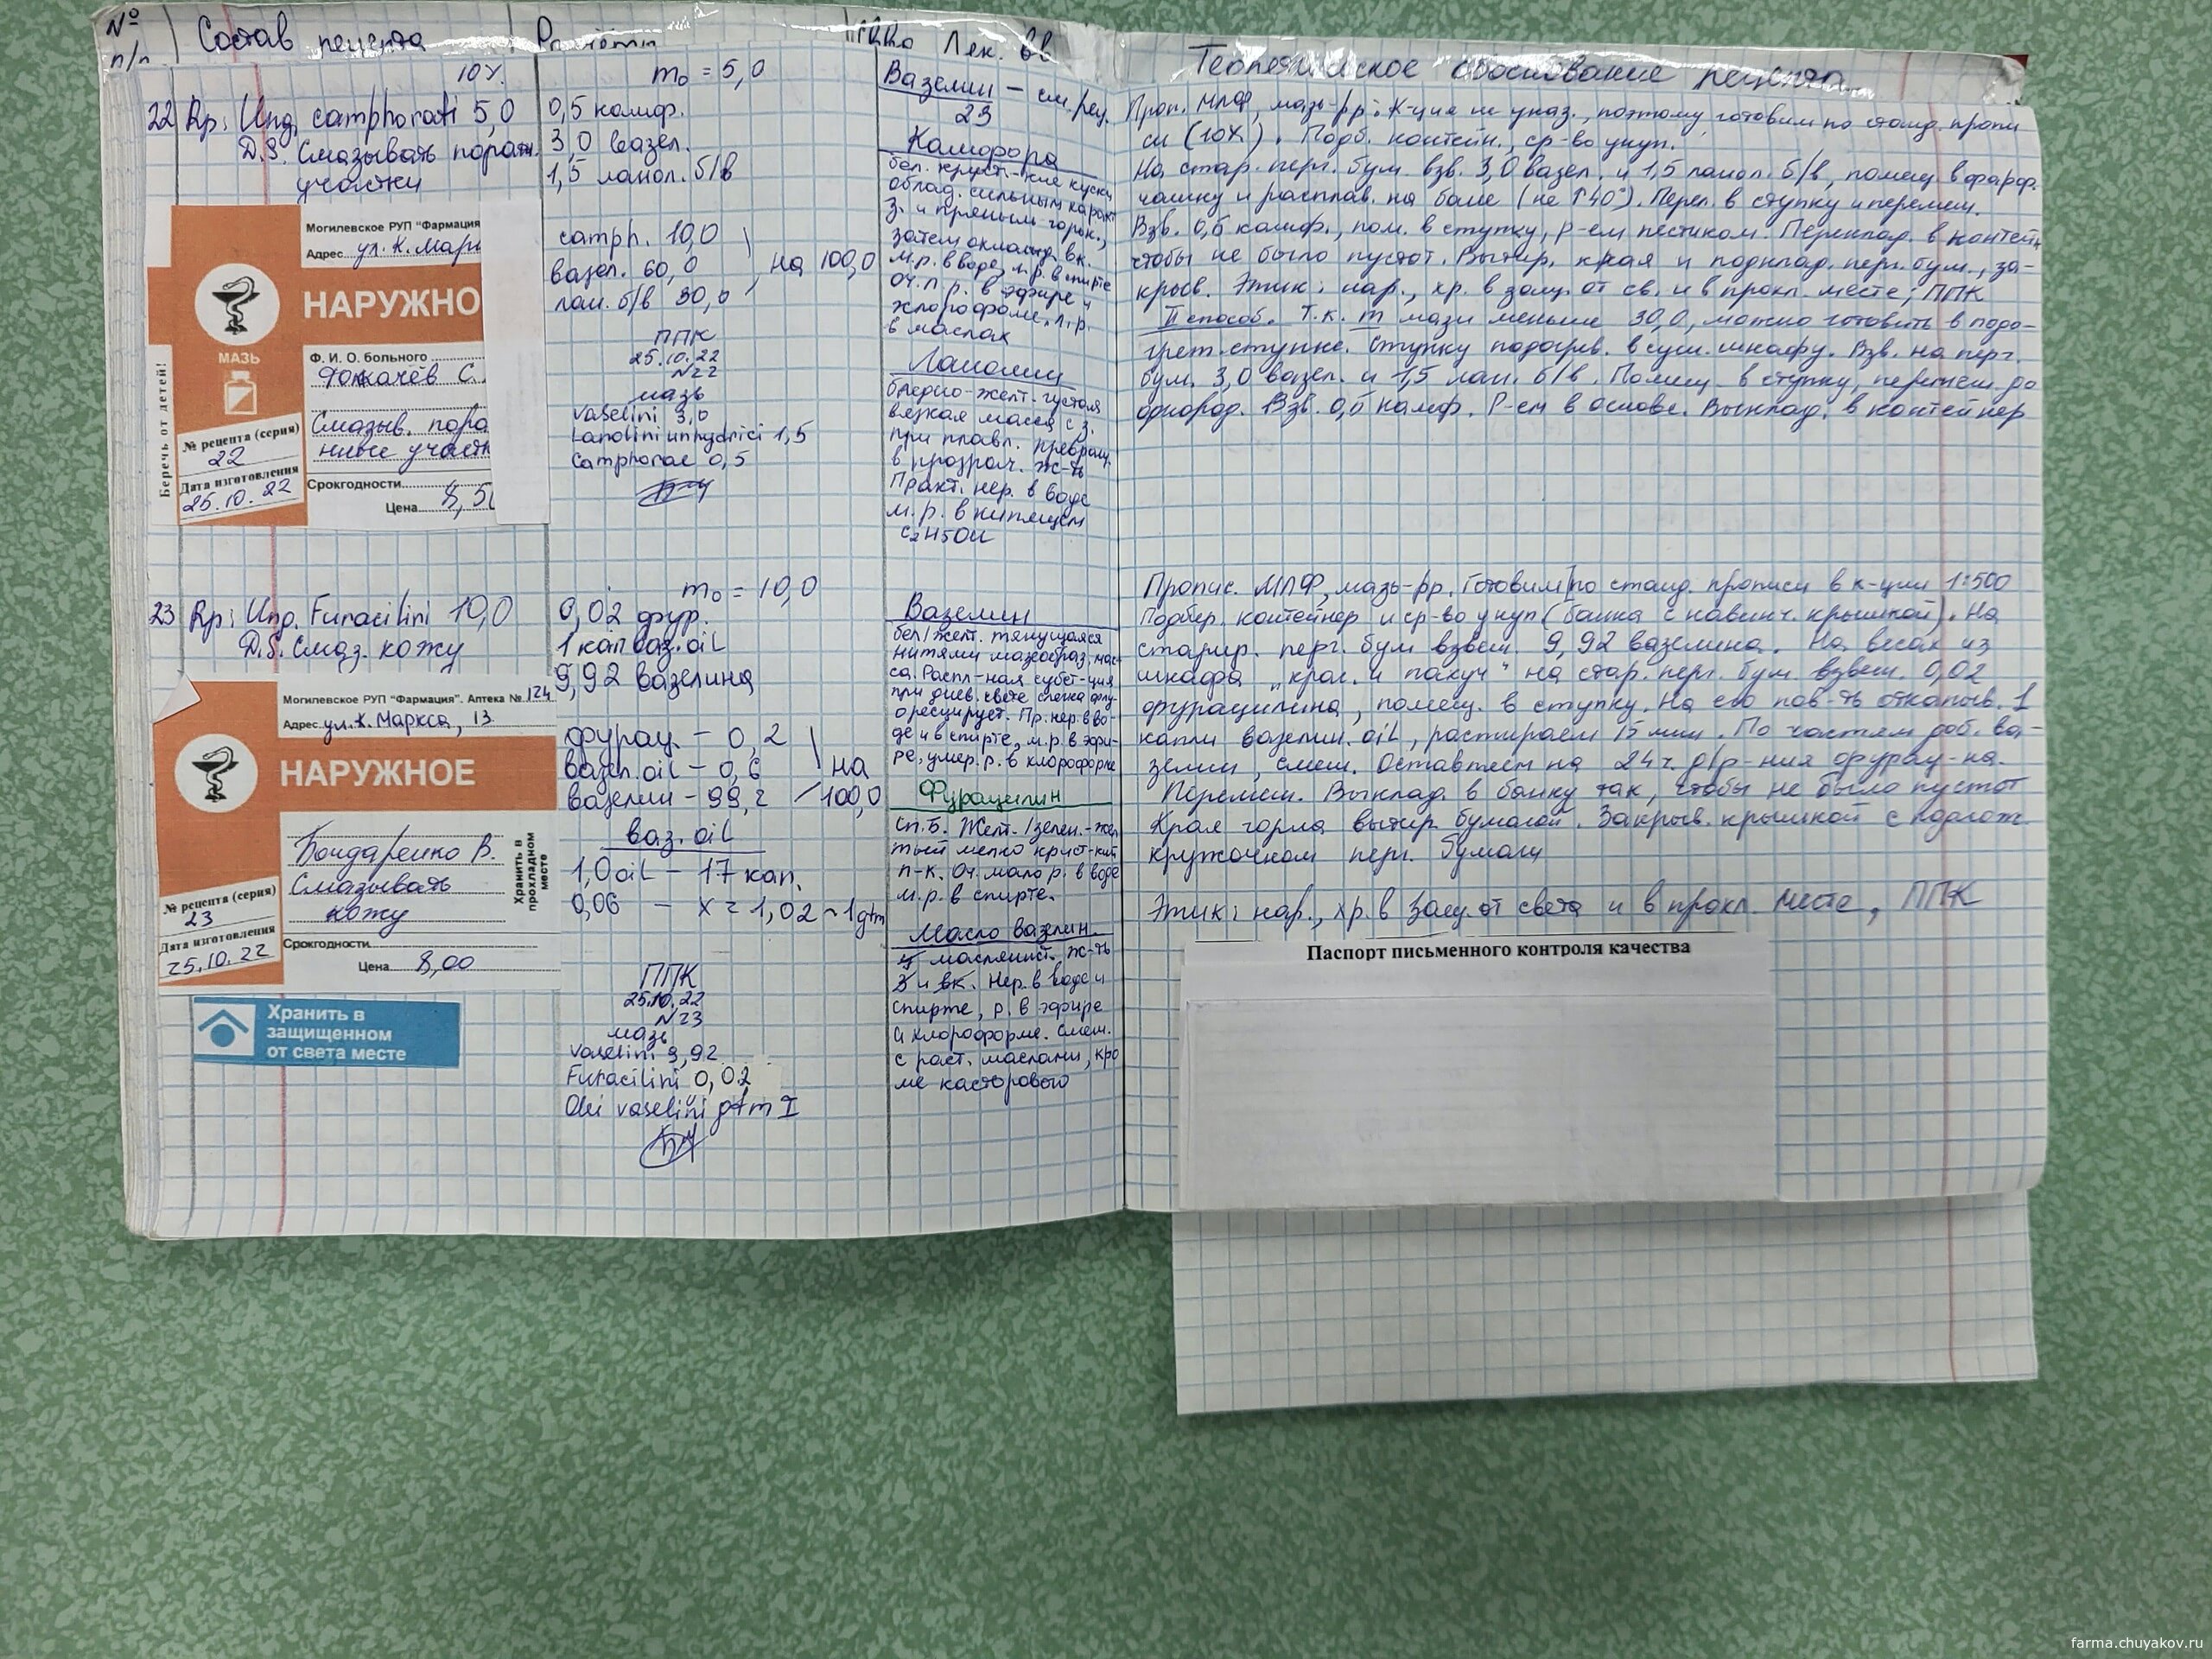 № п/п
Состав рецепта
Лек. вв
Теоретическое обоснование рецепта
22 Rp: Ung. camphorati 5,0
10%
D.S. Смазывать пораж.
участки
Могилевское РУП "Фармация
Адрес ул. К. Марк
НАРУЖНО
МАЗЬ
Беречь от детей!
Ф. И. О. больного
С.
Смазыв. пора
нные участк
№ рецепта (серия)
22
Дата изготовления
25.10.22
Срокгодности
Цена 8,50
m₀ = 5,0
0,5 камф.
3,0 вазел.
1,5 ланол. б/в
camph. 10,0
вазел. 60,0
лан. б/в 30,0
на 100,0
ППК
25.10.22
N22
мазь
Vaselini 3,0
Lanolini unhydrici 1,5
Camphorae 0,5
Вазелин – см. рец.
23
Камфора
бел. крист-кие куски
облад. сильным характ
з. и пряным горьк.,
затем охлажд. вк.
м.р. в воде, л.р. в спирте
оч. л.р. в эфире и
хлороформе, л.р.
в маслах
Ланолин
бледно-желт. густая
вязкая масса с з.
при плавл. превращ.
в прозрач. ж-ть
Практ. нер. в воде
м.р. в кипящем
C₂H5OH
Проп. МЛФ, мазь-рр. К-ция не указ., поэтому готовим по станд. пропи
си (10%). Подб. контейн., ср-во укуп.
На стар. перг. бум. взв. 3,0 вазел. и 1,5 ланол. б/в, помещ в фарф.
чашку и расплав. на бане (не ↑40°). Перел. в ступку и перемеш.
Взв. 0,5 камф., пом. в ступку, р-ем пестиком. Переклад. в контейн
чтобы не было пустот. Вытир. края и подклад. перг. бум., за-
крыв. Этик: нар., хр. в защ. от св. и в прохл. месте; ППК
II способ. Т.к. m мази меньше 30,0, можно готовить в подо-
грет. ступке. Ступку подогрев. в суш. шкафу. Взв. на перг.
бум. 3,0 вазел. и 1,5 лан. б/в. Помещ. в ступку, перемеш. до
однород. Взв. 0,5 камф. Р-ем в основе. Выклад. в контейнер
23 Rp: Ung. Furacilini 10,0
D.S. Смаз. кожу
Могилевское РУП "Фармация". Аптека № 124
Адрес ул. К. Маркса, 13
НАРУЖНОЕ
Бондаренко В.
Смазывать
кожу
Хранить в прохладном месте
№ рецепта (серия)
23
Дата изготовления
25.10.22
Срокгодности
Цена 8,00
Хранить в
защищенном
от света месте
m₀ = 10,0
0,02 фур.
1 кап ваз. oil
9,92 вазелина
фурац. – 0,2
вазел. oil – 0,6
вазелин – 99,2
на
100,0
ваз. oil
1,0 oil – 17 кап.
0,06 – x = 1,02 ~ 1 gtm
ППК
25.10.22
N23
мазь
Vaselini 9,92
Furacilini 0,02
Olei vaselini gtm I
Вазелин
бел/желт. тянущаяся
нитями мазеобраз. мас-
са. Распл-ная субст-ция
при днев. свете слегка флу-
оресцирует. Пр. нер. в во-
де и в спирте, м.р. в эфи-
ре, умер. р. в хлороформе
Фурацилин
Сп. Б. Желт./зелен.-жел
тый мелко крист-кий
п-к. Оч. мало р. в воде
м.р. в спирте.
Масло вазелин.
маслянист. ж-ть
з и вк. Нер. в воде и
спирте, р. в эфире
и хлороформе. Смеш.
с раст. маслами, кро
ме касторового
Пропис. МЛФ, мазь-рр. Готовим по станд. прописи в к-ции 1:500
Подбер. контейнер и ср-во укуп (банка с навинч. крышкой). На
старир. перг. бум взвеш. 9,92 вазелина. На весах из
шкафа „крас. и пахуч" на стар. перг. бум. взвеш. 0,02
фурацилина, помещ. в ступку. На его пов-ть откапыв. 1
каплю вазелин. oil, растираем 15 мин. По частям доб. ва-
зелин, смеш. Оставляем на 24 ч. д/р-ния фурац-на.
Перемеш. Выклад. в банку так, чтобы не было пустот
Края горла вытир бумагой. Закрыв. крышкой с подлож.
кружочком перг. бумаги
Этик: нар., хр. в защ. от света и в прохл. месте, ППК
Паспорт письменного контроля качества
farma.chuyakov.ru